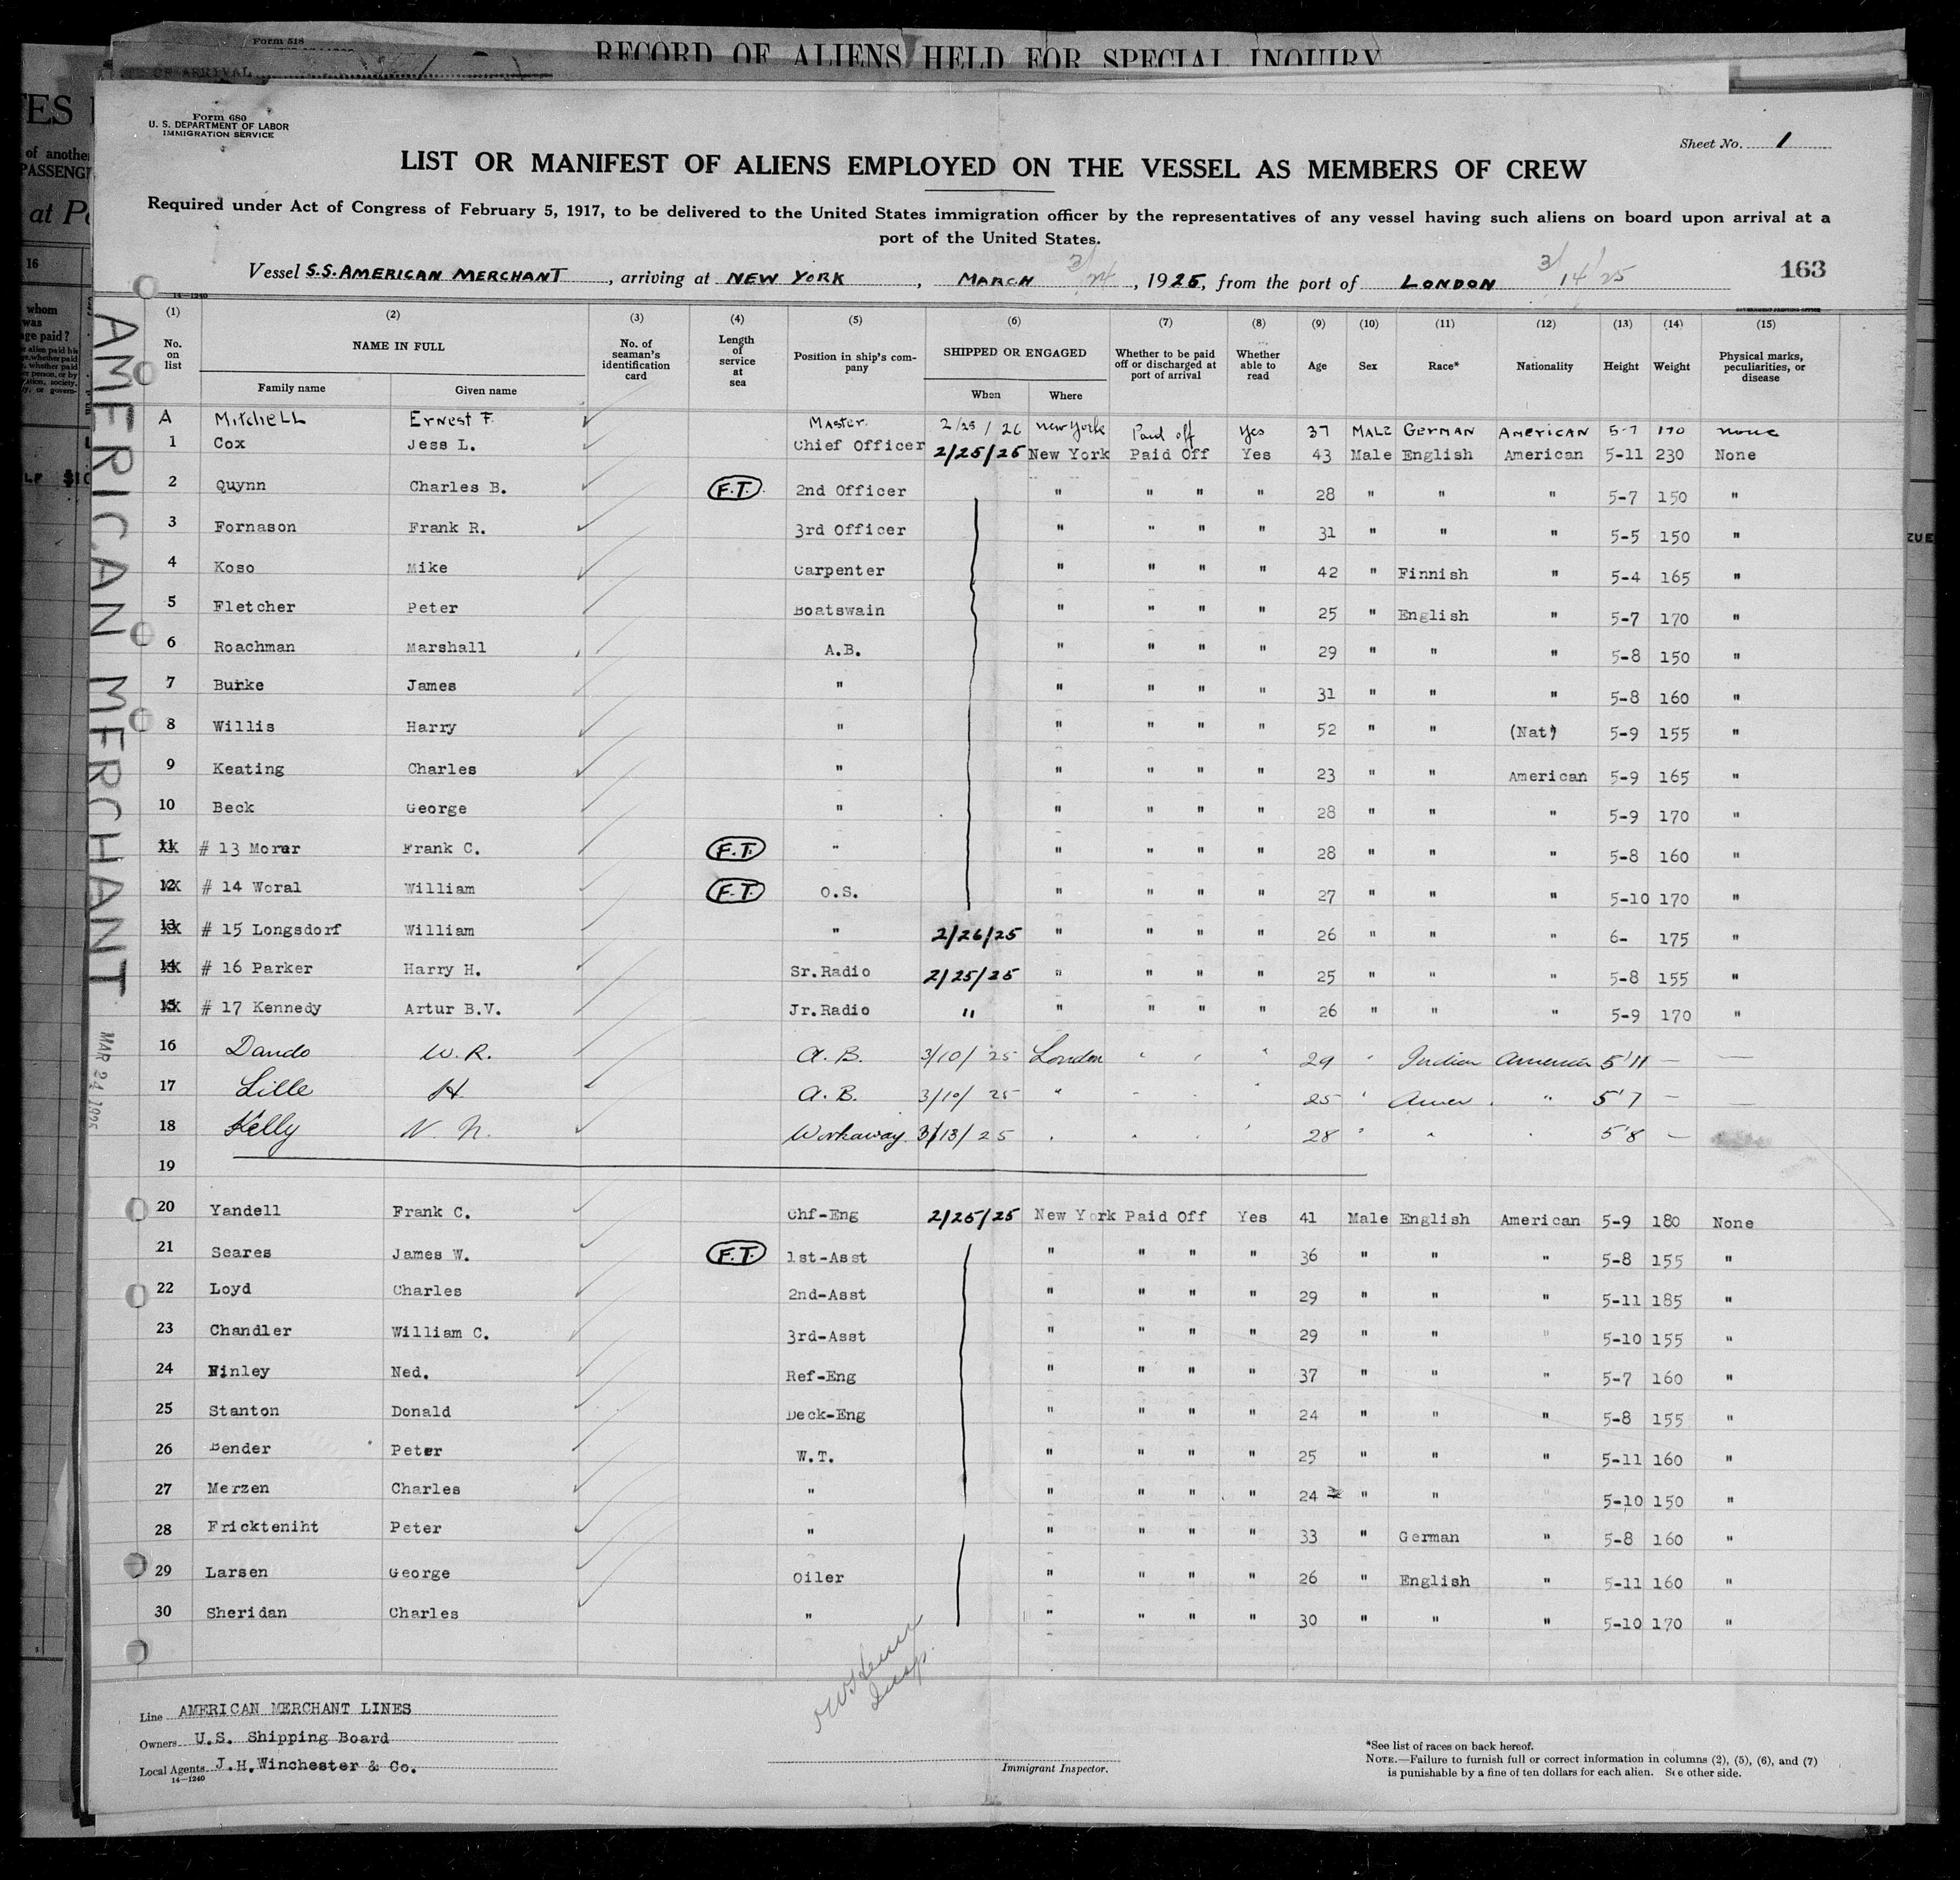 Form 518
RECORD OF ALIENS HELD FOR SPECIAL INQUIRY
OF ARRIVAL
Form 680
U. S. DEPARTMENT OF LABOR
IMMIGRATION SERVICE
Sheet No. 1
LIST OR MANIFEST OF ALIENS EMPLOYED ON THE VESSEL AS MEMBERS OF CREW
Required under Act of Congress of February 5, 1917, to be delivered to the United States immigration officer by the representatives of any vessel having such aliens on board upon arrival at a
port of the United States.
Vessel S.S. AMERICAN MERCHANT, arriving at NEW YORK, MARCH 3/24, 1925, from the port of LONDON 3/14/25
163
14—1240
(1) (2) (3) (4) (5) (6) (7) (8) (9) (10) (11) (12) (13) (14) (15)
No. on list NAME IN FULL Family name Given name No. of seaman's identification card Length of service at sea Position in ship's company SHIPPED OR ENGAGED When Where Whether to be paid off or discharged at port of arrival Whether able to read Age Sex Race* Nationality Height Weight Physical marks, peculiarities, or disease
A Mitchell Ernest F. Master 2/25/26 New York Paid off Yes 37 MALE GERMAN AMERICAN 5-7 170 none
1 Cox Jess L. Chief Officer 2/25/25 New York Paid Off Yes 43 Male English American 5-11 230 None
2 Quynn Charles B. F.T. 2nd Officer " " " " 28 " " " 5-7 150 "
3 Fornason Frank R. 3rd Officer " " " " 31 " " " 5-5 150 "
4 Koso Mike Carpenter " " " " 42 " Finnish " 5-4 165 "
5 Fletcher Peter Boatswain " " " " 25 " English " 5-7 170 "
6 Roachman Marshall A.B. " " " " 29 " " " 5-8 150 "
7 Burke James " " " " " 31 " " " 5-8 160 "
8 Willis Harry " " " " " 52 " " (Nat) 5-9 155 "
9 Keating Charles " " " " " 23 " " American 5-9 165 "
10 Beck George " " " " " 28 " " " 5-9 170 "
11 # 13 Morer Frank C. F.T. " " " " " 28 " " " 5-8 160 "
12 # 14 Woral William F.T. O.S. " " " " 27 " " " 5-10 170 "
13 # 15 Longsdorf William " 2/26/25 " " " " 26 " " " 6- 175 "
14 # 16 Parker Harry H. Sr.Radio 2/25/25 " " " " 25 " " " 5-8 155 "
15 # 17 Kennedy Artur B.V. Jr.Radio " " " " " 26 " " " 5-9 170 "
16 Dando W. R. A. B. 3/10/25 London " " " 29 " Indian American 5'11 — —
17 Lille H. A. B. 3/10/25 " " " 25 " Amer. " 5'7 — —
18 Kelly N. N. Workaway 3/13/25 " " " " 28 " " " 5'8 —
19
20 Yandell Frank C. Chf-Eng 2/25/25 New York Paid Off Yes 41 Male English American 5-9 180 None
21 Seares James W. F.T. 1st-Asst " " " " 36 " " " 5-8 155 "
22 Loyd Charles 2nd-Asst " " " " 29 " " " 5-11 185 "
23 Chandler William C. 3rd-Asst " " " " 29 " " " 5-10 155 "
24 Finley Ned. Ref-Eng " " " " 37 " " " 5-7 160 "
25 Stanton Donald Deck-Eng " " " " 24 " " " 5-8 155 "
26 Bender Peter W.T. " " " " 25 " " " 5-11 160 "
27 Merzen Charles " " " " " 24 " " 5-10 150 "
28 Frickteniht Peter " " " " " 33 " German " 5-8 160 "
29 Larsen George Oiler " " " " 26 " English " 5-11 160 "
30 Sheridan Charles " " " " " 30 " " " 5-10 170 "
AMERICAN MERCHANT
MAR 24 1925
Insp.
Line AMERICAN MERCHANT LINES
Owners U.S. Shipping Board
Local Agents J.H. Winchester & Co.
14—1240
Immigrant Inspector.
*See list of races on back hereof.
NOTE.—Failure to furnish full or correct information in columns (2), (5), (6), and (7)
is punishable by a fine of ten dollars for each alien. See other side.